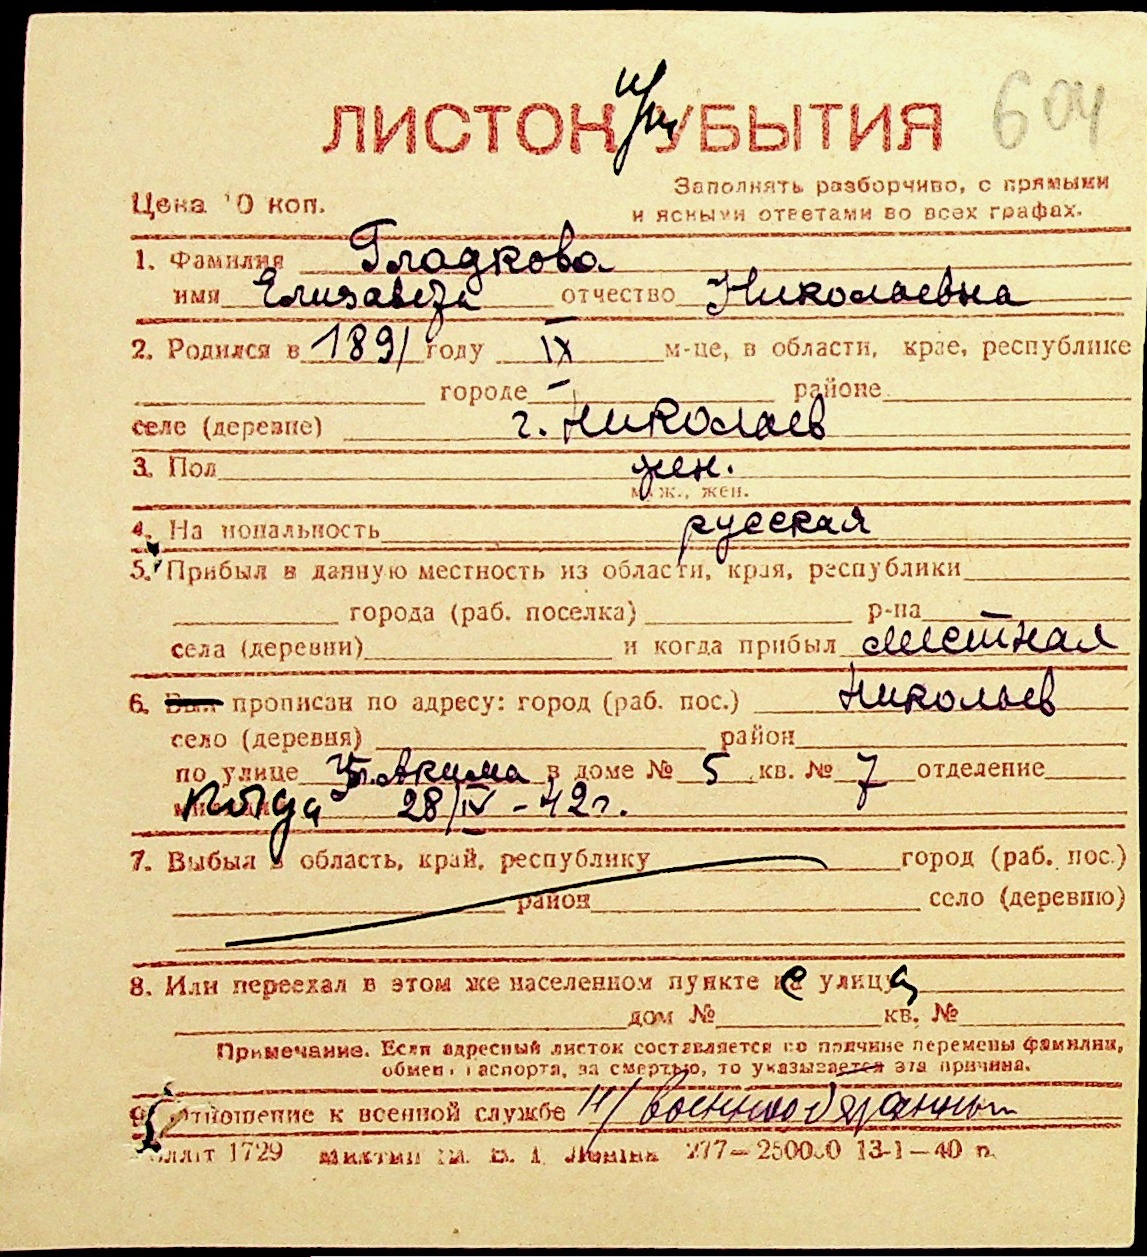 ЛИСТОК УБЫТИЯ 604
Цена 10 коп. Заполнять разборчиво, с прямыми
и ясными ответами во всех графах.
1. Фамилия Гладкова
имя Елизавета отчество Николаевна
2. Родился в 1891 году IX м-це, в области, крае, республике
городе — районе
селе (деревне) г. Николаев
3. Пол жен.
муж., жен.
4. Национальность русская
5. Прибыл в данную местность из области, края, республики
города (раб. поселка) р-на
села (деревни) и когда прибыл местная
6. Был прописан по адресу: город (раб. пос.) Николаев
село (деревня) район
по улице Акима в доме № 5 кв. № 7 отделение
когда 28/IV-42г.
7. Выбыл в область, край, республику город (раб. пос.)
район село (деревню)
8. Или переехал в этом же населенном пункте с улица
дом № кв. №
Примечание. Если адресный листок составляется по причине перемены фамилии,
обмена паспорта, за смертью, то указывается эта причина.
9. Отношение к военной службе н/военнообязанный
1729 277—250000 13-1—40 п.